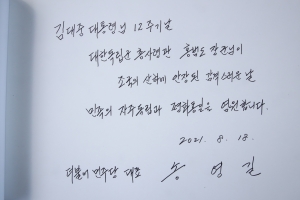 김대중 대통령님 12주기날
대한독립군 총사령관 홍범도 장군님이
조국의 산하에 안장된 감격스러운 날
민족의 자주독립과 평화통일을 염원합니다.
2021. 8. 18.
더불어민주당 대표 송영길